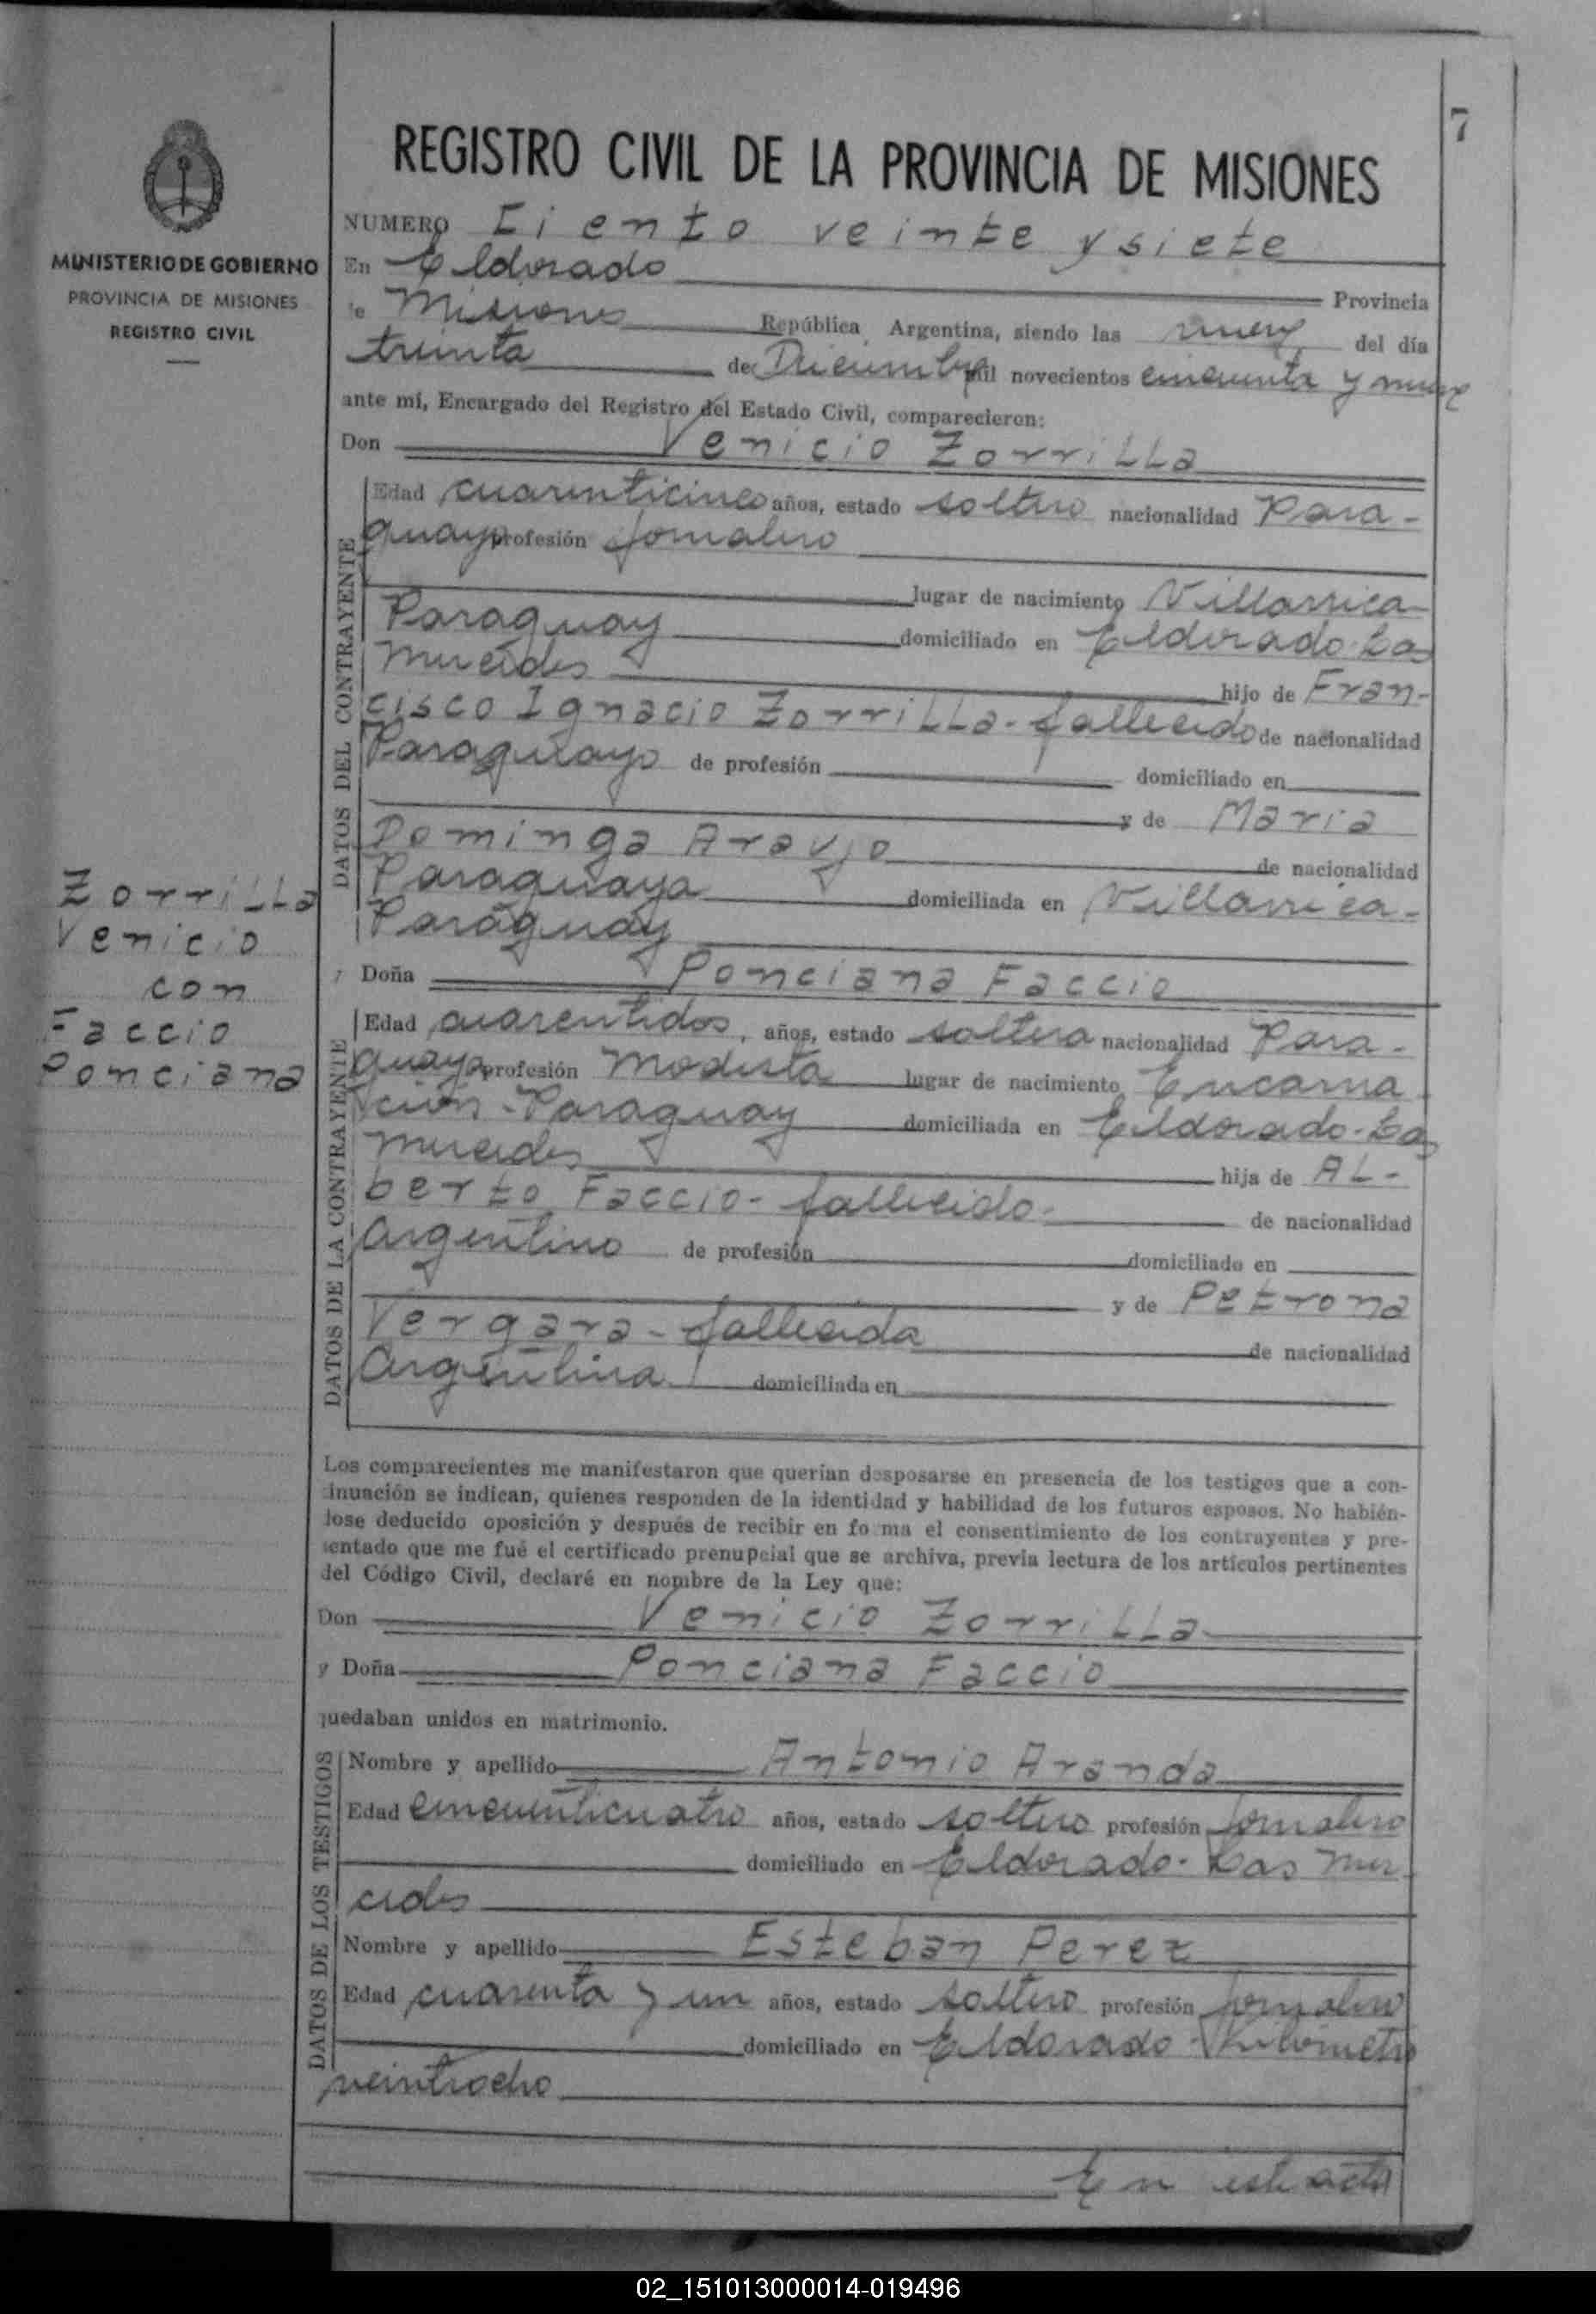 7
REGISTRO CIVIL DE LA PROVINCIA DE MISIONES
MINISTERIO DE GOBIERNO
PROVINCIA DE MISIONES
REGISTRO CIVIL
NUMERO Ciento veinte y siete
En Eldorado Provincia
de Misiones República Argentina, siendo las nueve del día
treinta de Diciembre mil novecientos cincuenta y nueve
ante mí, Encargado del Registro del Estado Civil, comparecieron:
Don Venicio Zorrilla
DATOS DEL CONTRAYENTE
Edad cuarenticinco años, estado soltero nacionalidad Para-
guayo profesión Jornalero
lugar de nacimiento Villarrica
Paraguay domiciliado en Eldorado-Las
Mercedes hijo de Fran-
cisco Ignacio Zorrilla-fallecido de nacionalidad
Paraguayo de profesión domiciliado en
y de Maria
Dominga Araujo de nacionalidad
Paraguaya domiciliada en Villarrica-
Paraguay
Zorrilla
Venicio
con
Faccio
Ponciana
y Doña Ponciana Faccio
DATOS DE LA CONTRAYENTE
Edad cuarentidos, años, estado soltera nacionalidad Para-
guaya profesión Modista lugar de nacimiento Encarna
ción-Paraguay domiciliada en Eldorado-Las
Mercedes hija de Al-
berto Faccio-fallecido- de nacionalidad
Argentino de profesión domiciliado en
y de Petrona
Vergara-fallecida de nacionalidad
Argentina domiciliada en
Los comparecientes me manifestaron que querían desposarse en presencia de los testigos que a con-
tinuación se indican, quienes responden de la identidad y habilidad de los futuros esposos. No habién-
dose deducido oposición y después de recibir en fo ma el consentimiento de los contrayentes y pre-
sentado que me fué el certificado prenupcial que se archiva, previa lectura de los artículos pertinentes
del Código Civil, declaré en nombre de la Ley que:
Don Venicio Zorrilla
y Doña Ponciana Faccio
quedaban unidos en matrimonio.
DATOS DE LOS TESTIGOS
Nombre y apellido Antonio Aranda
Edad cincuenticuatro años, estado soltero profesión Jornalero
domiciliado en Eldorado-Las Mer
cedes
Nombre y apellido Esteban Perez
Edad cuarenta y un años, estado soltero profesión Jornalero
domiciliado en Eldorado-Kilometro
veintiocho
En este acto
02_151013000014-019496